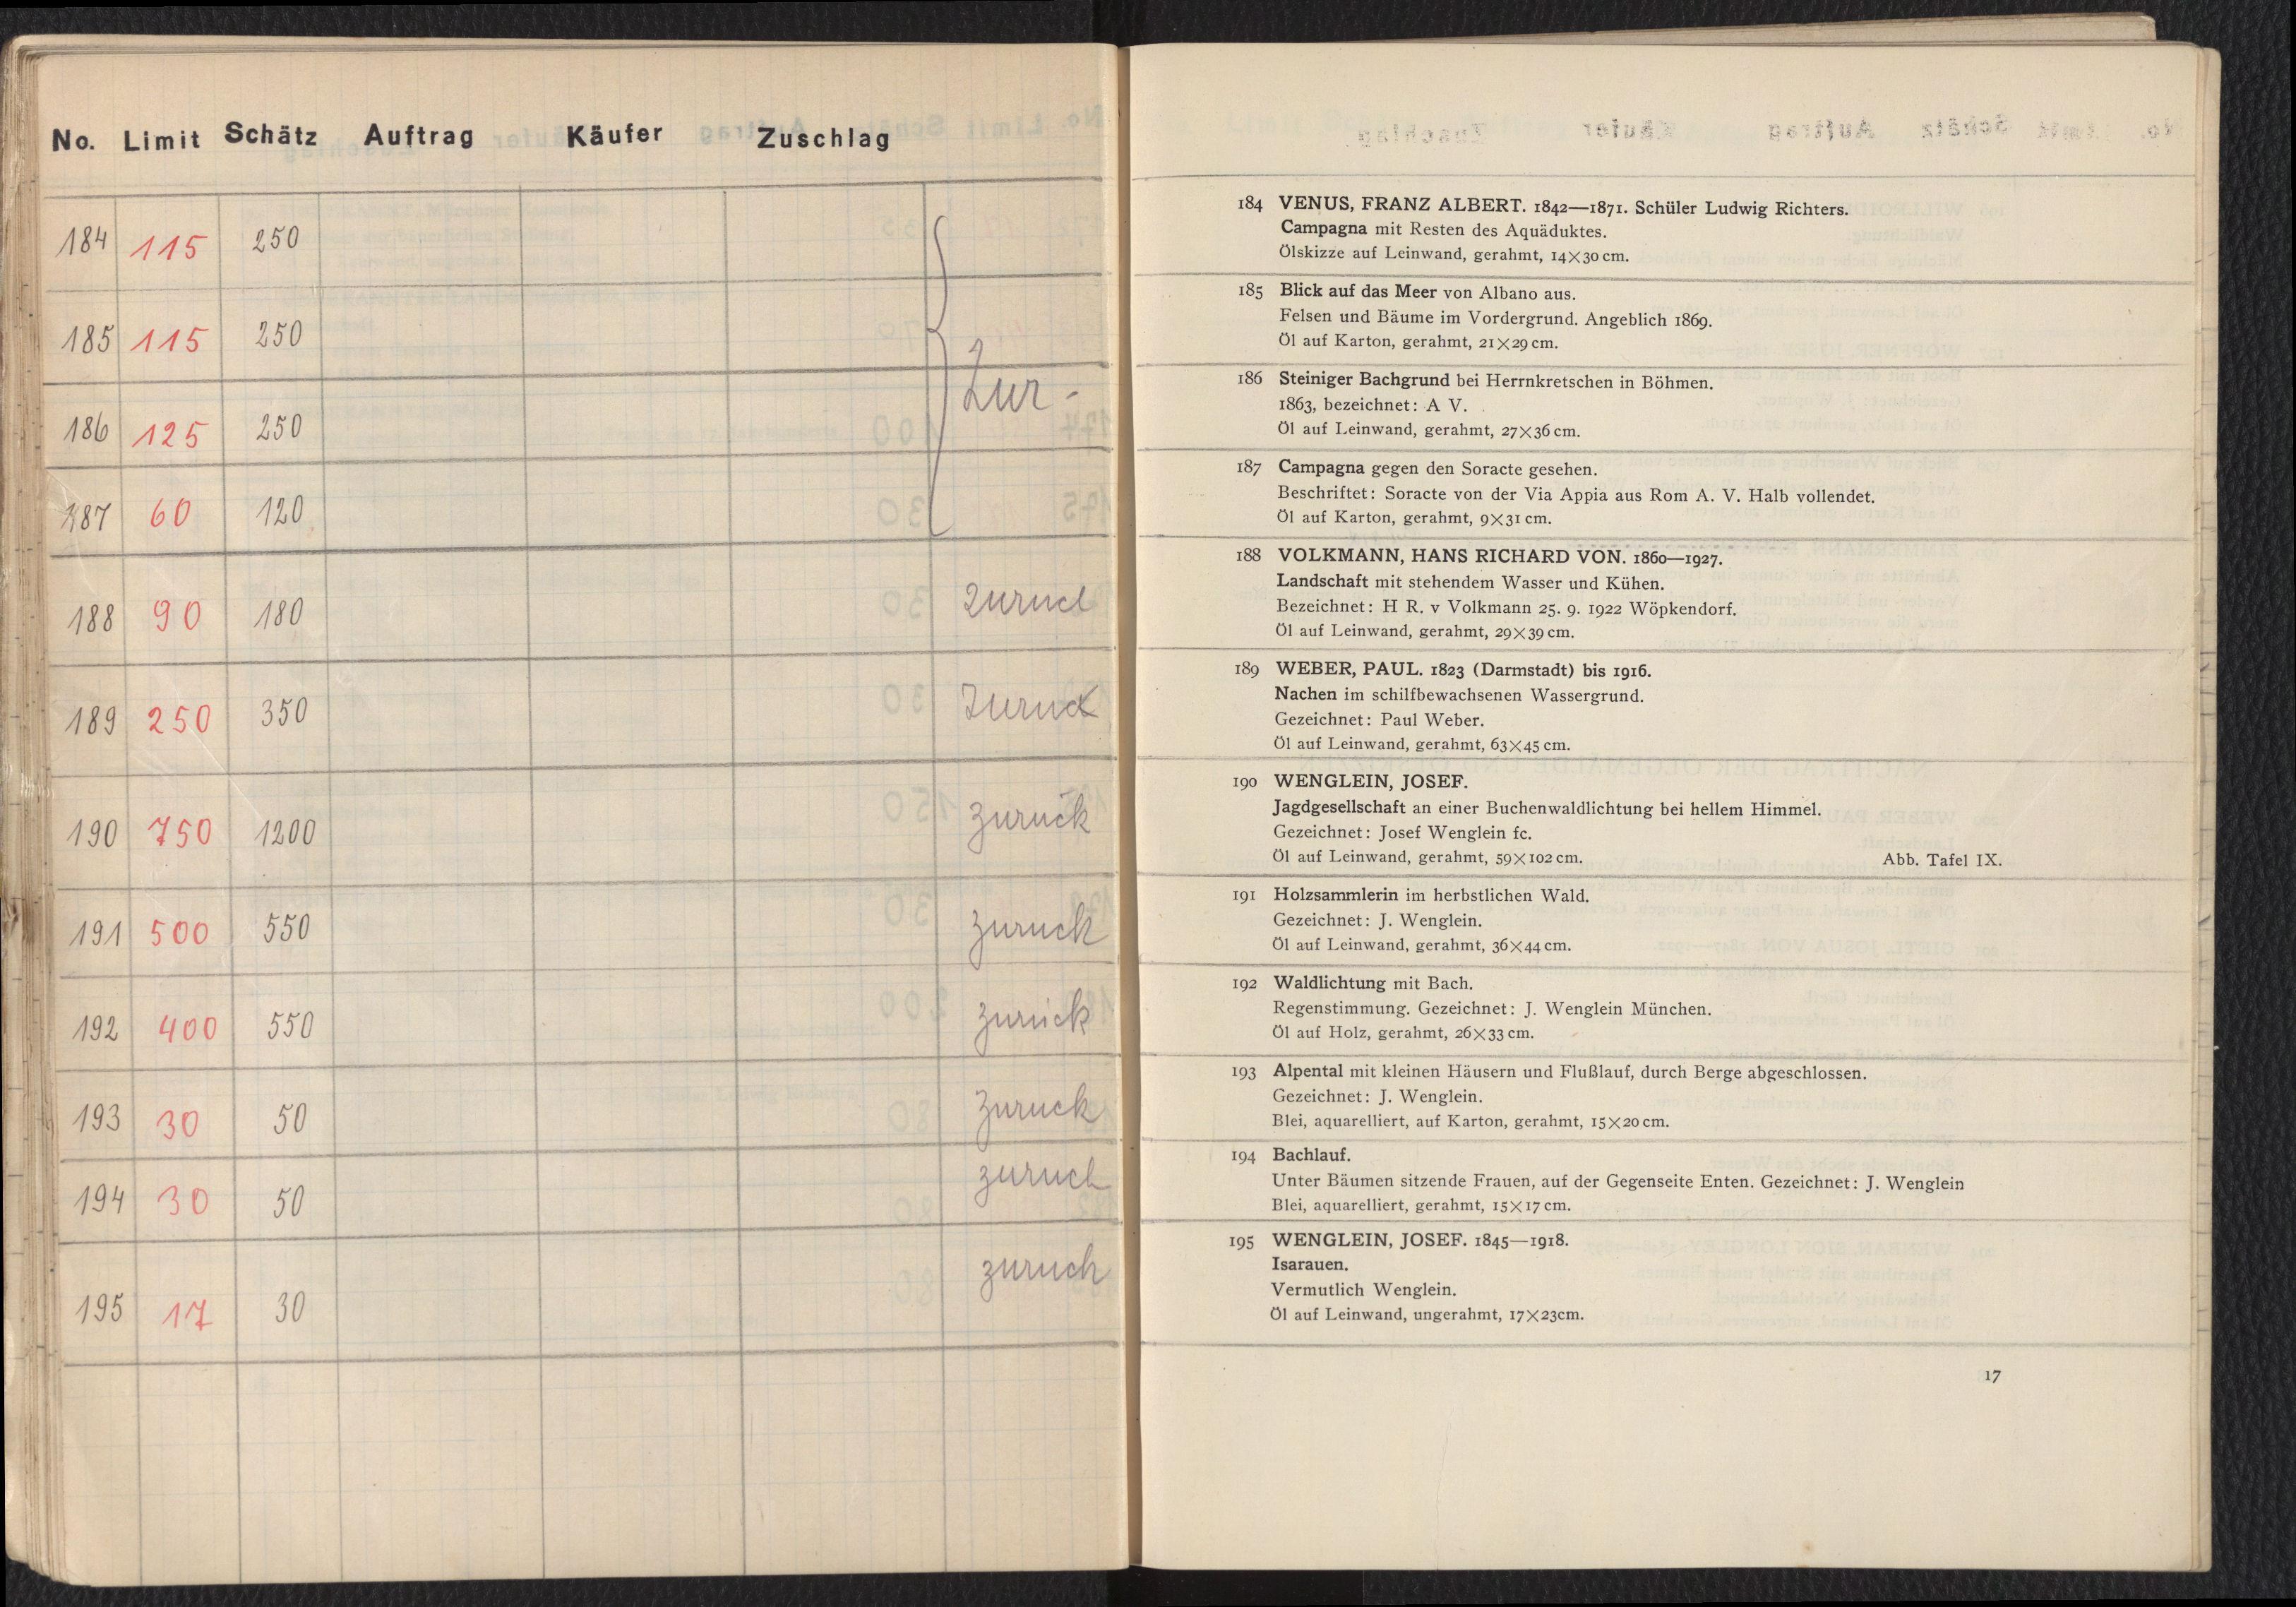 No. Limit Schätz Auftrag Käufer Zuschlag
184 115 250
185 115 250
Zur-
186 125 250
187 60 120
188 90 180 zurück
189 250 350 Zurück
190 750 1200 zurück
191 500 550 zurück
192 400 550 zurück
193 30 50 zurück
194 30 50 zurück
195 17 30 zurück
184 VENUS, FRANZ ALBERT. 1842—1871. Schüler Ludwig Richters.
Campagna mit Resten des Aquäduktes.
Ölskizze auf Leinwand, gerahmt, 14×30 cm.
185 Blick auf das Meer von Albano aus.
Felsen und Bäume im Vordergrund. Angeblich 1869.
Öl auf Karton, gerahmt, 21×29 cm.
186 Steiniger Bachgrund bei Herrnkretschen in Böhmen.
1863, bezeichnet: A V.
Öl auf Leinwand, gerahmt, 27×36 cm.
187 Campagna gegen den Soracte gesehen.
Beschriftet: Soracte von der Via Appia aus Rom A. V. Halb vollendet.
Öl auf Karton, gerahmt, 9×31 cm.
188 VOLKMANN, HANS RICHARD VON. 1860—1927.
Landschaft mit stehendem Wasser und Kühen.
Bezeichnet: H R. v Volkmann 25. 9. 1922 Wöpkendorf.
Öl auf Leinwand, gerahmt, 29×39 cm.
189 WEBER, PAUL. 1823 (Darmstadt) bis 1916.
Nachen im schilfbewachsenen Wassergrund.
Gezeichnet: Paul Weber.
Öl auf Leinwand, gerahmt, 63×45 cm.
190 WENGLEIN, JOSEF.
Jagdgesellschaft an einer Buchenwaldlichtung bei hellem Himmel.
Gezeichnet: Josef Wenglein fc.
Öl auf Leinwand, gerahmt, 59×102 cm. Abb. Tafel IX.
191 Holzsammlerin im herbstlichen Wald.
Gezeichnet: J. Wenglein.
Öl auf Leinwand, gerahmt, 36×44 cm.
192 Waldlichtung mit Bach.
Regenstimmung. Gezeichnet: J. Wenglein München.
Öl auf Holz, gerahmt, 26×33 cm.
193 Alpental mit kleinen Häusern und Flußlauf, durch Berge abgeschlossen.
Gezeichnet: J. Wenglein.
Blei, aquarelliert, auf Karton, gerahmt, 15×20 cm.
194 Bachlauf.
Unter Bäumen sitzende Frauen, auf der Gegenseite Enten. Gezeichnet: J. Wenglein
Blei, aquarelliert, gerahmt, 15×17 cm.
195 WENGLEIN, JOSEF. 1845—1918.
Isarauen.
Vermutlich Wenglein.
Öl auf Leinwand, ungerahmt, 17×23cm.
17